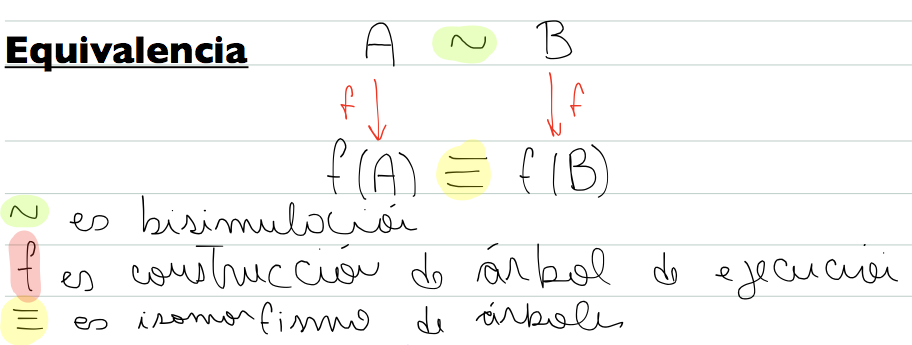 Equivalencia A ~ B
f f
f(A) ≡ f(B)
~ es bisimulación
f es construcción de árbol de ejecución
≡ es isomorfismo de árboles